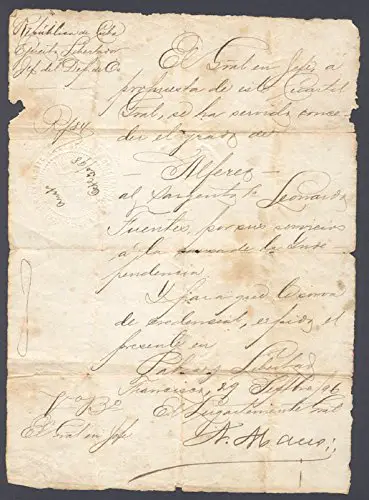 República de Cuba
Ejército Libertador
Jef. del Dep. de Ote
El Gral en Jefe á
propuesta de este Cuartel
Gral, se ha servido conce-
der el grado de
— Alferez —
al Sargento 1º Leonardo
Fuentes, por sus servicios
á la causa de la Inde-
pendencia.
Y para que le sirva
de credencial, expido el
presente en
Patria y Libertad
Francisco, 29 Septbre 96
El Lugarteniente Gral
Vto Bo
El Gral en Jefe
A. Maceo